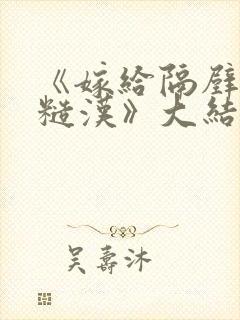 《嫁給隔壁
糙漢》大結
吳壽沐